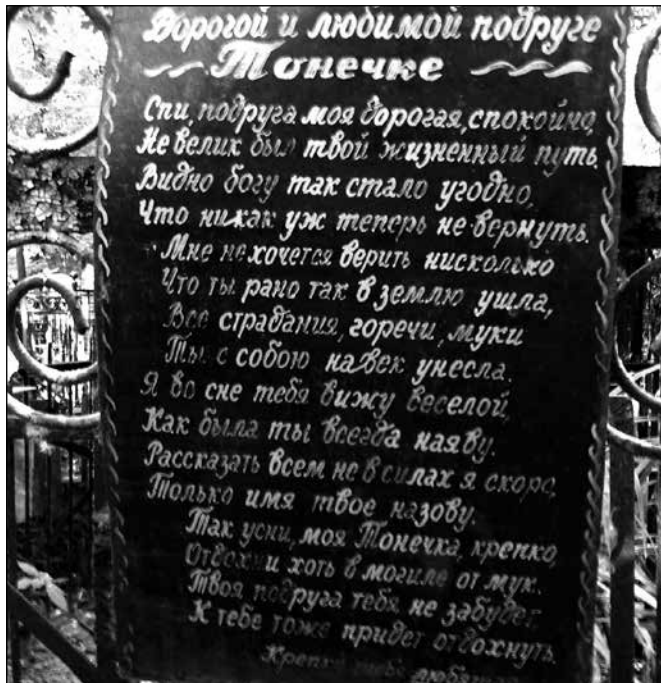 Дорогой и любимой подруге
Тонечке
Спи, подруга моя дорогая, спокойно,
Не велик был твой жизненный путь.
Видно богу так стало угодно,
Что никак уж теперь не вернуть.
Мне не хочется верить нисколько
Что ты рано так в землю ушла,
Все страдания, горечи, муки
Ты с собою навек унесла.
Я во сне тебя вижу веселой,
Как была ты всегда наяву.
Рассказать всем не в силах я скоро,
Только имя твое назову.
Так усни, моя Тонечка, крепко,
Отдохни хоть в могиле от мук.
Твоя подруга тебя не забудет
К тебе тоже придет отдохнуть.
Крепко тебя